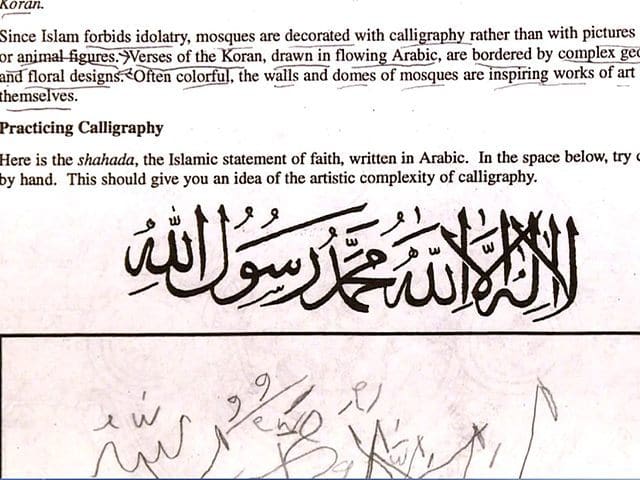 Koran.
Since Islam forbids idolatry, mosques are decorated with calligraphy rather than with pictures
or animal figures. Verses of the Koran, drawn in flowing Arabic, are bordered by complex geo
and floral designs. Often colorful, the walls and domes of mosques are inspiring works of art
themselves.
Practicing Calligraphy
Here is the shahada, the Islamic statement of faith, written in Arabic. In the space below, try
by hand. This should give you an idea of the artistic complexity of calligraphy.
لا إله إلا الله محمد رسول الله